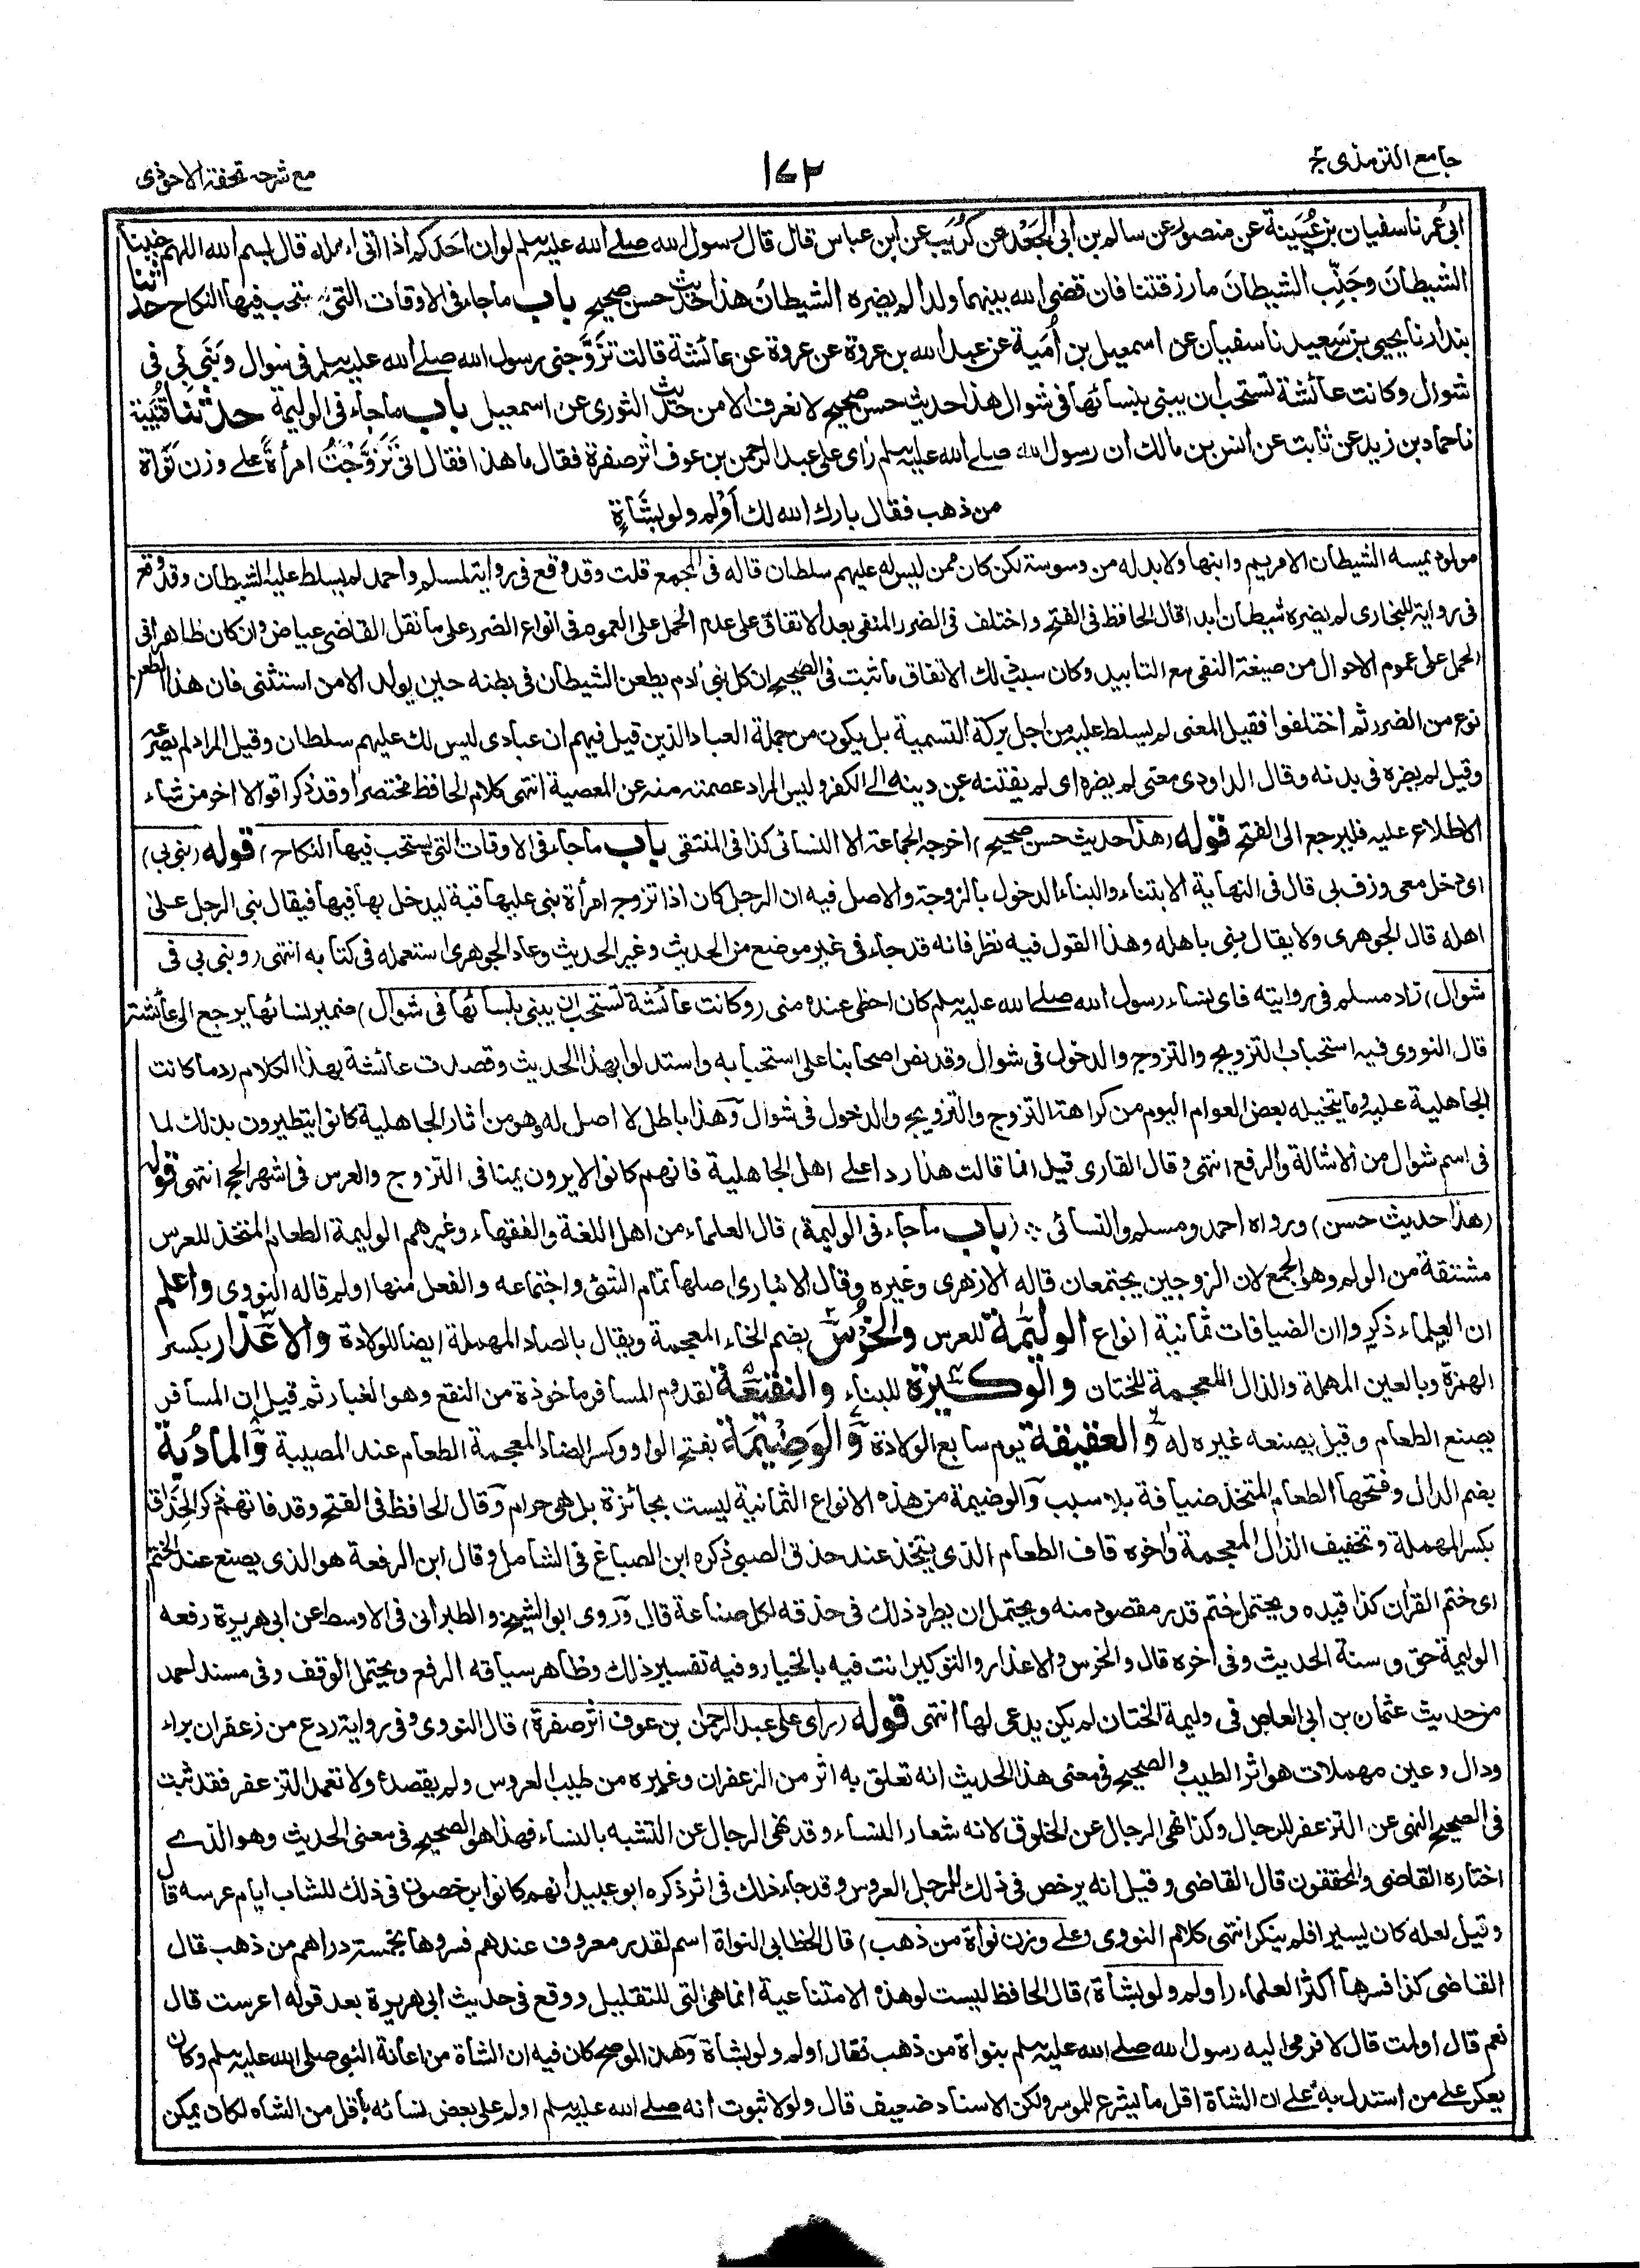 جامع الترمذی ج ۲
۱۷۲
مع شرحه تحفة الاحوذی
ابی عمر نا سفیان بن عُیَینة عن منصور عن سالم بن ابی الجَعْد عن کُرَیب عن ابن عباس قال قال رسول الله صلے الله علیه وسلم لو ان احدکم اذا اتی اهله قال بسم الله اللهم جنبنا
الشیطانَ وجَنِّب الشیطانَ ما رزقتنا فان قضی الله بینهما ولدا لم یضره الشیطانُ هذا حدیث حسن صحیح باب ما جاء فی الاوقات التی یستحب فیها النکاح حدثنا
بندار نا یحیی بن سَعید نا سفیان عن اسمعیل بن اُمَیة عن عبد الله بن عروة عن عروة عن عائشة قالت تزَوَّجنی رسول الله صلے الله علیه وسلم فی شوال وبَنَی بِی فی
شوال وکانت عائشة تستحب ان یبنی بنسائها فی شوال هذا حدیث حسن صحیح لا نعرفه الا من حدیث الثوری عن اسمعیل باب ما جاء فی الولیمة حدثنا قتیبة
نا حماد بن زید عن ثابت عن انس بن مالک ان رسول الله صلے الله علیه وسلم رای علی عبد الرحمن بن عوف اثر صفرة فقال ما هذا فقال انی تَزَوَّجْتُ امرأةً علے وزن نَوَاة
من ذهب فقال بارك الله لك اَوْلِم ولو بشَاةٍ
مولود یمسه الشیطان الا مریم وابنها ولابد له من وسوسة لکن کان ممن لیس له علیهم سلطان قاله فی المجمع قلت وقد وقع فی روایة لمسلم واحمد لم یسلط علیه الشیطان وقد وقع
فی روایة للبخاری لم یضره شیطان ابدا قال الحافظ فی الفتح واختلف فی الضرر المنفی بعد الاتفاق علی عدم الحمل علی العموم فی انواع الضرر علی ما نقل القاضی عیاض وان کان ظاهرا فی
الحمل علی عموم الاحوال من صیغة النفی مع التابید وکان سبب ذلك الاتفاق ما ثبت فی الصحیح ان کل بنی اٰدم یطعن الشیطان فی بطنه حین یولد الا من استثنی فان هذا الطعن
نوع من الضرر ثم اختلفوا فقیل المعنی لم یسلط علیه من اجل برکة التسمیة بل یکون من جملة العباد الذین قیل فیهم ان عبادی لیس لك علیهم سلطان وقیل المراد لم یصرعه
وقیل لم یضره فی بدنه وقال الداودی معنی لم یضره ای لم یفتنه عن دینه الی الکفر ولیس المراد عصمته منه عن المعصیة انتهی کلام الحافظ مختصرا وقد ذکر اقوالا اخر من شاء
الاطلاع علیه فلیرجع الی الفتح قوله (هذا حدیث حسن صحیح) اخرجه الجماعة الا النسائی کذا فی المنتقی باب ما جاء فی الاوقات التی یستحب فیها النکاح) قوله (بنی بی)
ای دخل معی وزف بی قال فی النهایة الابتناء والبناء الدخول بالزوجة والاصل فیه ان الرجل کان اذا تزوج امرأة بنی علیها قبة لیدخل بها فیها فیقال بنی الرجل علی
اهله قال الجوهری ولا یقال بنی باهله وهذا القول فیه نظر فانه قد جاء فی غیر موضع من الحدیث وغیر الحدیث وعاد الجوهری استعمله فی کتابه انتهی (وبنی بی فی
شوال) زاد مسلم فی روایته فای نساء رسول الله صلے الله علیه وسلم کان احظی عنده منی (وکانت عائشة تستحب ان یبنی بنسائها فی شوال) ضمیر نسائها یرجع الی عائشة
قال النووی فیه استحباب التزویج والتزوج والدخول فی شوال وقد نص اصحابنا علی استحبابه واستدلوا بهذا الحدیث وقصدت عائشة بهذا الکلام رد ما کانت
الجاهلیة علیه وما یتخیله بعض العوام الیوم من کراهة التزوج والتزویج والدخول فی شوال وهذا باطل لا اصل له وهو من اٰثار الجاهلیة کانوا یتطیرون بذلك لما
فی اسم شوال من الاشالة والرفع انتهی وقال القاری قیل انما قالت هذا ردا علے اهل الجاهلیة فانهم کانوا لا یرون یمنا فی التزوج والعرس فی اشهر الحج انتهی قوله
(هذا حدیث حسن) ورواه احمد ومسلم والنسائی (باب ما جاء فی الولیمة) قال العلماء من اهل اللغة والفقهاء وغیرهم الولیمة الطعام المتخذ للعرس
مشتقة من الولم وهو الجمع لان الزوجین یجتمعان قاله الازهری وغیره وقال الانباری اصلها تمام الشئ واجتماعه والفعل منها اولم قاله النووی واعلم
ان العلماء ذکروا ان الضیافات ثمانیة انواع الولیمة للعرس والخُرْس بضم الخاء المعجمة ویقال بالصاد المهملة ایضا للولادة والاعذار بکسر
الهمزة وبالعین المهملة والذال المعجمة للختان والوکیرة للبناء والنقیعة لقدوم المسافر ماخوذة من النقع وهو الغبار ثم قیل ان المسافر
یصنع الطعام وقیل یصنعه غیره له والعقیقة یوم سابع الولادة والوَضِیمَة بفتح الواو وکسر الضاد المعجمة الطعام عند المصیبة والمادُبة
بضم الدال وفتحها الطعام المتخذ ضیافة بلا سبب والوضیمة من هذه الانواع الثمانیة لیست بجائزة بل هی حرام وقال الحافظ فی الفتح وقد فاتهم ذکر الحِذاق
بکسر المهملة وتخفیف الذال المعجمة واٰخره قاف الطعام الذی یتخذ عند حذق الصبی ذکره ابن الصباغ فی الشامل وقال ابن الرفعة هو الذی یصنع عند الختم
ای ختم القراٰن کذا قیده ویحتمل ختم قدر مقصود منه ویحتمل ان یطرد ذلك فی حذقه لکل صناعة قال وروی ابو الشیخ والطبرانی فی الاوسط عن ابی هریرة رفعه
الولیمة حق وسنة الحدیث وفی اٰخره قال والخرس والاعذار والتوکیر انت فیه بالخیار وفیه تفسیر ذلك وظاهر سیاقه الرفع ویحتمل الوقف وفی مسند احمد
من حدیث عثمان بن ابی العاص فی ولیمة الختان لم یکن یدعی لها انتهی قوله (رای علی عبد الرحمٰن بن عوف اثر صفرة) قال النووی وفی روایة ردع من زعفران براء
ودال وعین مهملات هو اثر الطیب والصحیح فی معنی هذا الحدیث انه تعلق به اثر من الزعفران وغیره من طیب العروس ولم یقصده ولا تعمد التزعفر فقد ثبت
فی الصحیح النهی عن التزعفر للرجال وکذا نهی الرجال عن الخلوق لانه شعار النساء وقد نهی الرجال عن التشبه بالنساء فهذا هو الصحیح فی معنی الحدیث وهو الذے
اختاره القاضی والمحققون قال القاضی وقیل انه یرخص فی ذلك للرجل العروس وقد جاء ذلك فی اثر ذکره ابو عبید انهم کانوا یرخصون فی ذلك للشاب ایام عرسه قال
وقیل لعله کان یسیرا فلم ینکر انتهی کلام النووی (علی وزن نواة من ذهب) قال الخطابی النواة اسم لقدر معروف عندهم فسروها بخمسة دراهم من ذهب قال
القاضی کذا فسرها اکثر العلماء (اولم ولو بشاة) قال الحافظ لیست لو هذه الامتناعیة انما هی التی للتقلیل ووقع فی حدیث ابی هریرة بعد قوله اعرست قال
نعم قال اولمت قال لا فرمی الیه رسول الله صلے الله علیه وسلم بنواة من ذهب فقال اولم ولو بشاة وهذا لو صح کان فیه ان الشاة من اعانة النبی صلی الله علیه وسلم وکان
یعکر علی من استدل به علی ان الشاة اقل ما یشرع للموسر ولکن الاسناد ضعیف قال ولولا ثبوت انه صلے الله علیه وسلم اولم علی بعض نسائه باقل من الشاة لکان یمکن